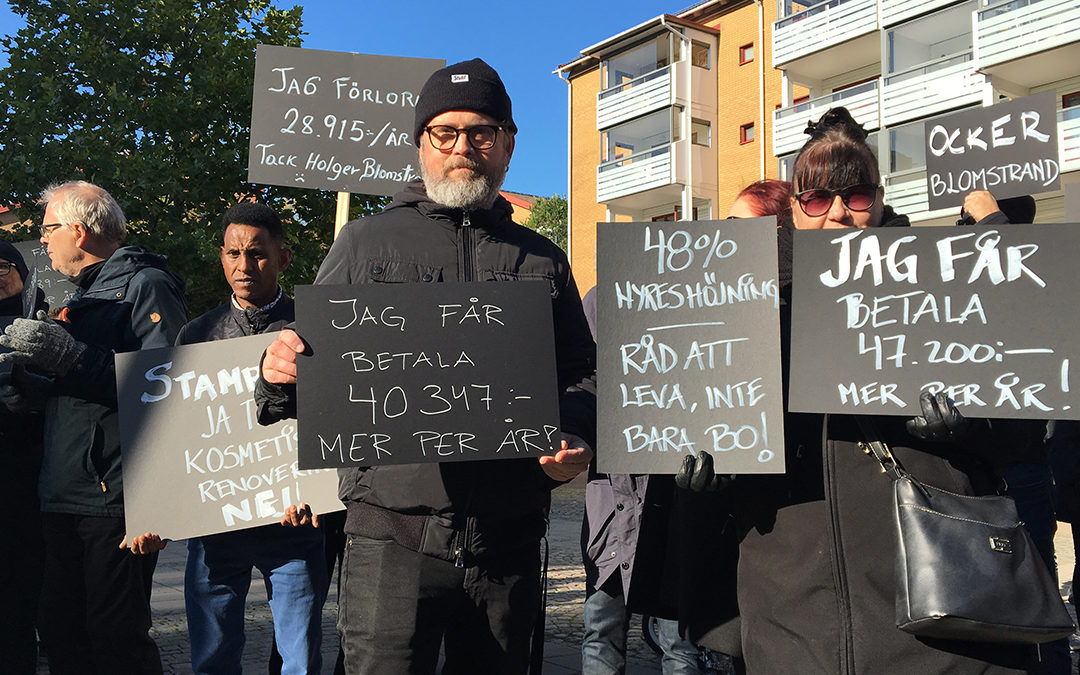 JAG FÖRLORA
28.915:-/ÅR
Tack Holger Blomstra
OCKER
BLOMSTRAND
STAMP
JA T
KOSMETIS
RENOVER
NEJ!
JAG FÅR
BETALA
40 347:-
MER PER ÅR?
48%
HYRESHÖJNING
RÅD ATT
LEVA, INTE
BARA BO!
JAG FÅR
BETALA
47.200:-
MER PER ÅR!